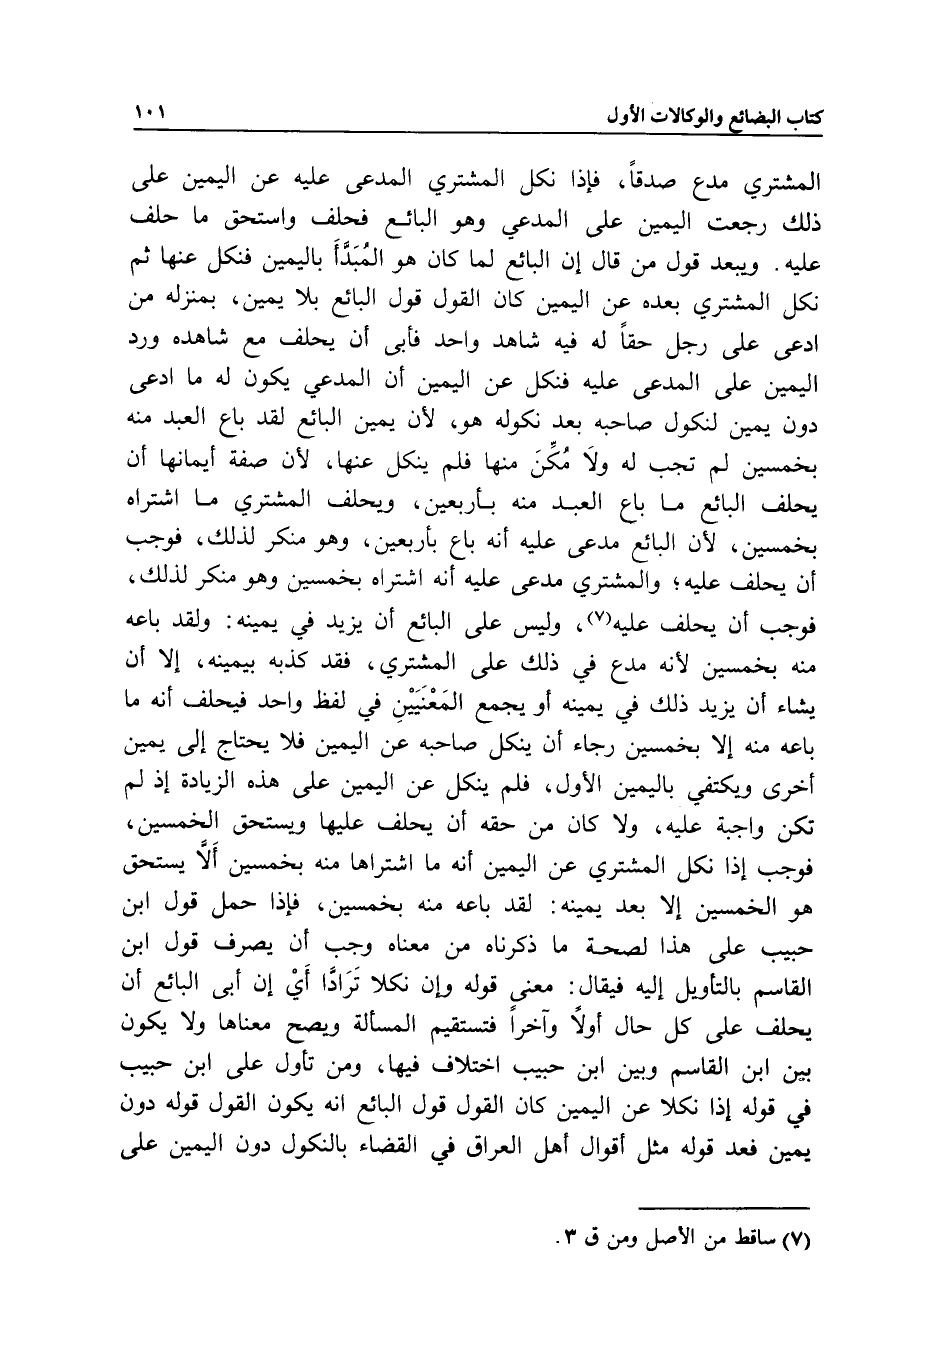 كتاب البضائع والوكالات الأول ١٠١
المشتري مدع صدقاً، فإذا نكل المشتري المدعى عليه عن اليمين على
ذلك رجعت اليمين على المدعي وهو البائع فحلف واستحق ما حلف
عليه. ويبعد قول من قال إن البائع لما كان هو المُبَدَّأَ باليمين فنكل عنها ثم
نكل المشتري بعده عن اليمين كان القول قول البائع بلا يمين، بمنزله من
ادعى على رجل حقاً له فيه شاهد واحد فأبى أن يحلف مع شاهده ورد
اليمين على المدعى عليه فنكل عن اليمين أن المدعي يكون له ما ادعى
دون يمين لنكول صاحبه بعد نكوله هو، لأن يمين البائع لقد باع العبد منه
بخمسين لم تجب له ولاَ مُكِّنَ منها فلم ينكل عنها، لأن صفة أيمانها أن
يحلف البائع ما باع العبد منه بأربعين، ويحلف المشتري ما اشتراه
بخمسين، لأن البائع مدعى عليه أنه باع بأربعين، وهو منكر لذلك، فوجب
أن يحلف عليه؛ والمشتري مدعى عليه أنه اشتراه بخمسين وهو منكر لذلك،
فوجب أن يحلف عليه(٧)، وليس على البائع أن يزيد في يمينه: ولقد باعه
منه بخمسين لأنه مدع في ذلك على المشتري، فقد كذبه بيمينه، إلا أن
يشاء أن يزيد ذلك في يمينه أو يجمع المَعْنَيَيْنِ في لفظ واحد فيحلف أنه ما
باعه منه إلا بخمسين رجاء أن ينكل صاحبه عن اليمين فلا يحتاج إلى يمين
أخرى ويكتفي باليمين الأول، فلم ينكل عن اليمين على هذه الزيادة إذ لم
تكن واجبة عليه، ولا كان من حقه أن يحلف عليها ويستحق الخمسين،
فوجب إذا نكل المشتري عن اليمين أنه ما اشتراها منه بخمسين أَلَّا يستحق
هو الخمسين إلا بعد يمينه: لقد باعه منه بخمسين، فإذا حمل قول ابن
حبيب على هذا لصحة ما ذكرناه من معناه وجب أن يصرف قول ابن
القاسم بالتأويل إليه فيقال: معنى قوله وإن نكلا تَرَادَّا أَيْ إن أبى البائع أن
يحلف على كل حال أولاً وآخراً فتستقيم المسألة ويصح معناها ولا يكون
بين ابن القاسم وبين ابن حبيب اختلاف فيها، ومن تأول على ابن حبيب
في قوله إذا نكلا عن اليمين كان القول قول البائع انه يكون القول قوله دون
يمين فعد قوله مثل أقوال أهل العراق في القضاء بالنكول دون اليمين على
(٧) ساقط من الأصل ومن ق ٣.